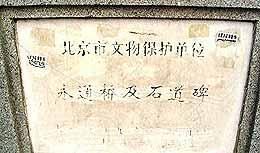 北京市文物保护单位
永道桥及石道碑